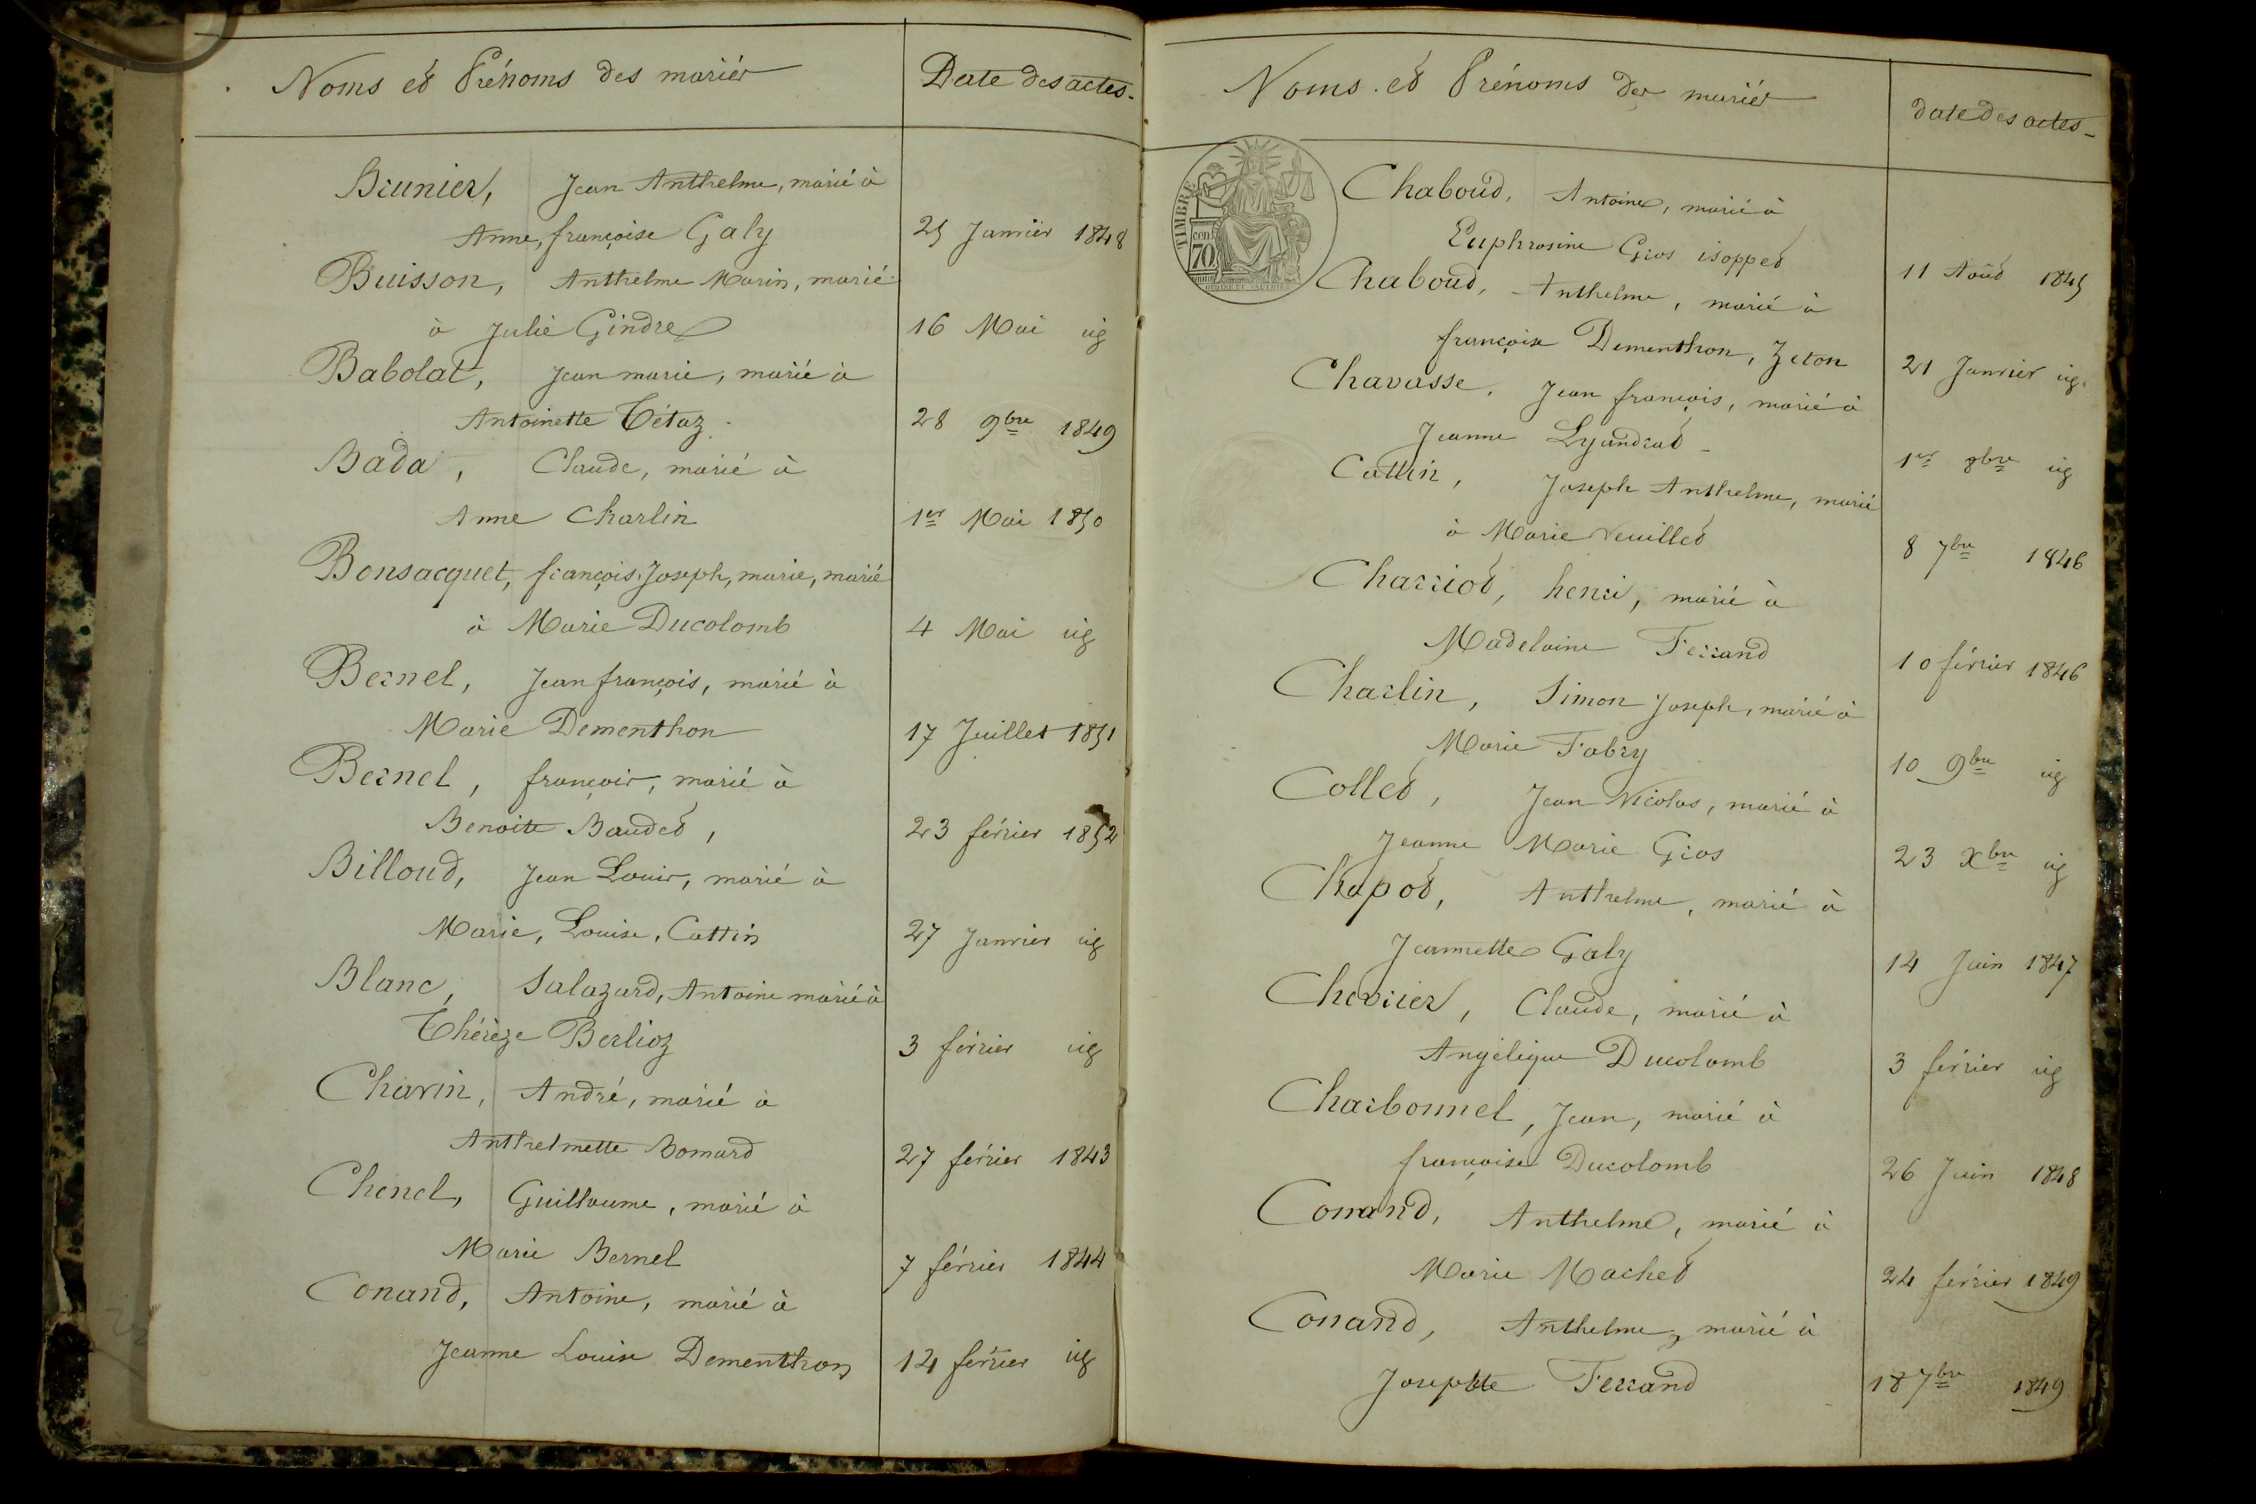 Noms et Prénoms des mariés
Date des actes.
Brunier, Jean Anthelme, marié à
Anne, françoise Galy 25 Janvier 1848
Buisson, Anthelme Marin, marié
à Julie Gindre 16 Mai id
Babolat, Jean marie, marié à
Antoinette Tétaz. 28 9bre 1849
Bada, Claude, marié à
Anne Charlin 1er Mai 1850
Bonsacquet, françois, Joseph, marie, marié
à Marie Ducolomb 4 Mai id
Bernel, Jean françois, marié à
Marie Dementhon 17 Juillet 1851
Bernel, françois, marié à
Benoite Baudet, 23 février 1852
Billoud, Jean Louis, marié à
Marie, Louise, Cattin 27 Janvier id
Blanc, Salazard, Antoine marié à
Thérèze Berlioz 3 février id
Charin, André, marié à
Anthelmette Bomard 27 février 1843
Chenel, Guillaume, marié à
Marie Bernel 7 février 1844
Conand, Antoine, marié à
Jeanne Louise Dementhon 14 février id
Noms. et Prénoms des mariés
date des actes
TIMBRE
70
Chaboud, Antoine, marié à
Euphrosine Gros isoppet 11 Août 1845
Chaboud, Anthelme, marié à
françoise Dementhon, Zeton 21 Janvier id.
Chavasse, Jean françois, marié à
Jeanne Lyandrat 1er 8bre id
Cattin, Joseph Anthelme, marié
à Marie Neuillet 8 7bre 1846
Charriot, henri, marié à
Madelaine Ferrand 10 février 1846
Charlin, Simon Joseph, marié à
Marie Fabry 10 9bre id
Collet, Jean Nicolas, marié à
Jeanne Marie Gros 23 Xbre id
Chapot, Anthelme, marié à
Jeannette Galy 14 Juin 1847
Chevrier, Claude, marié à
Angélique Ducolomb 3 février id
Charbonnel, Jean, marié à
françoise Ducolomb 26 Juin 1848
Conand, Anthelme, marié à
Marie Machet 24 février 1849
Conand, Anthelme, marié à
Josephte Ferrand 18 7bre 1849